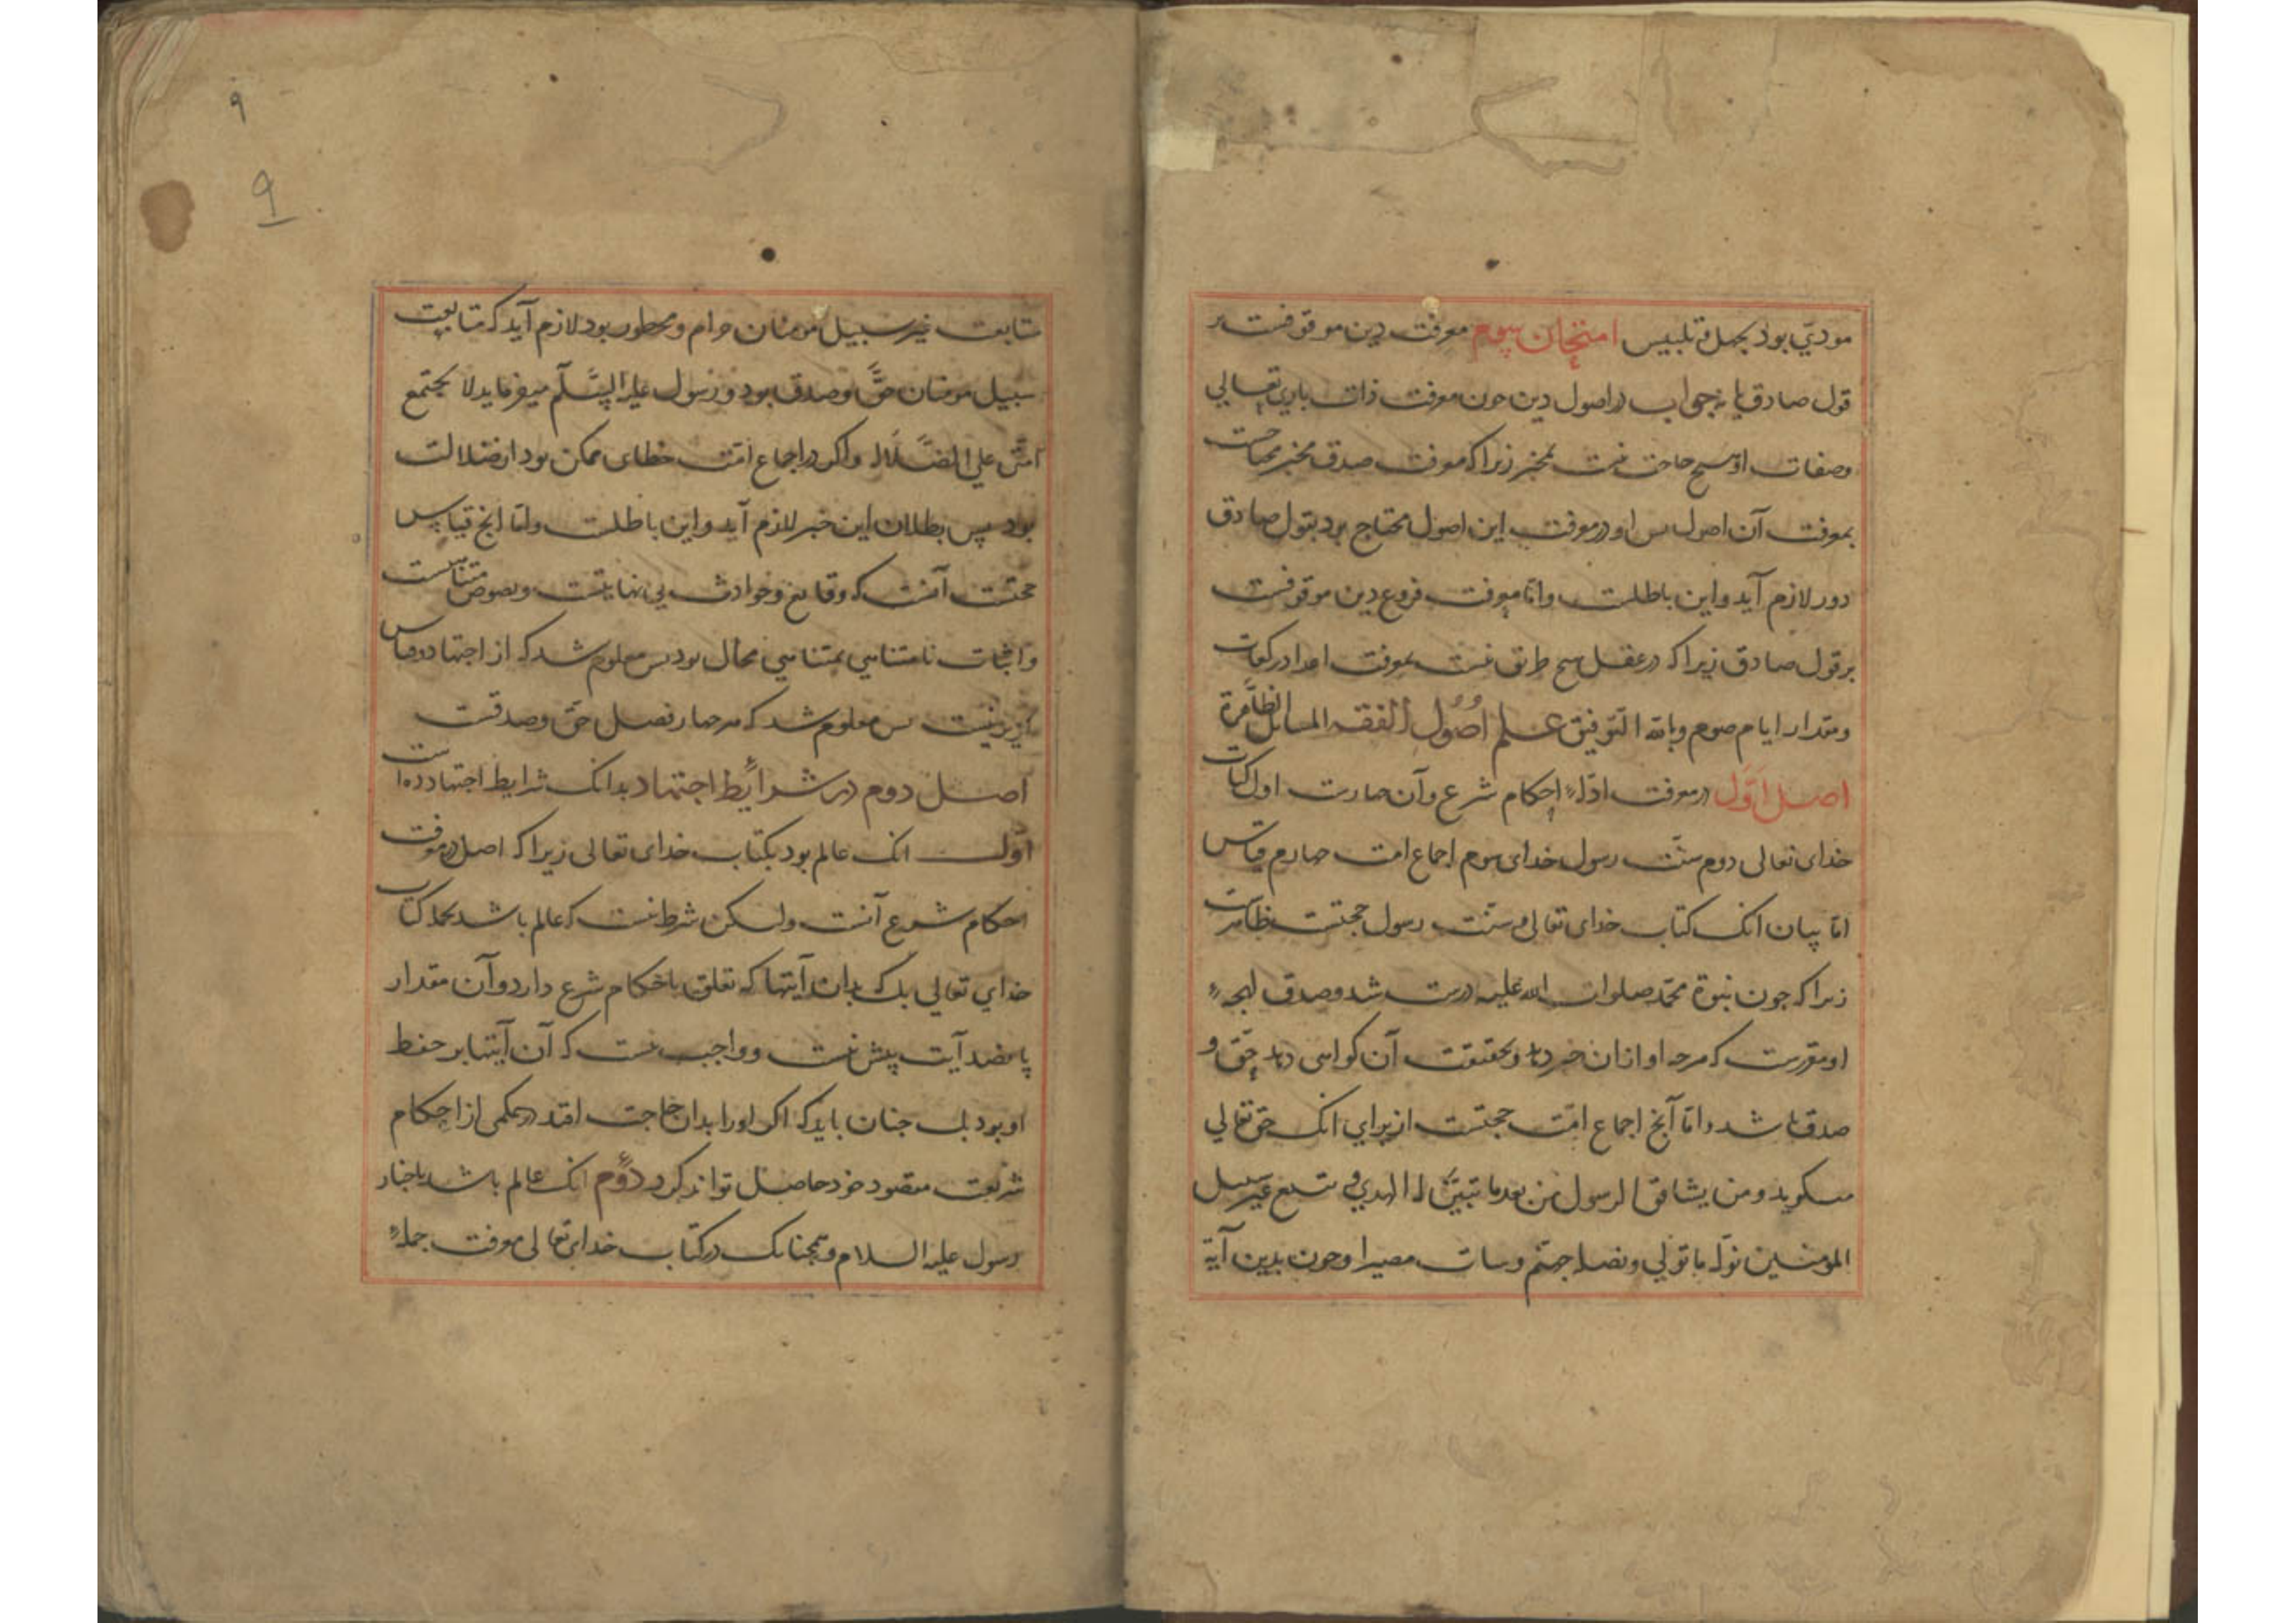 مودی بود بجهل و تلبیس امتحان سیوم معرفت دین موقوفست بر
قول صادق یا نه جواب در اصول دین چون معرفت ذات باری تعالی
وصفات او هیچ حاجت نیست بمخبر زیرا که معرفت صدق مخبر محتاجست
بمعرفت آن اصول پس او در معرفت این اصول محتاج بود بقول صادق
دور لازم آید و این باطلست و اما معرفت فروع دین موقوفست
بر قول صادق زیرا که در عقل هیچ طریق نیست بمعرفت اعداد رکعات
ومقدار ایام صوم وبالله التوفیق علم اصول الفقه المسائل الظاهرة
اصل اول در معرفت ادلهٔ احکام شرع و آن چهارست اول کتاب
خدای تعالی دوم سنت رسول خدای سوم اجماع امت چهارم قیاس
اما بیان انک کتاب خدای تعالی و سنت رسول حجتست ظاهرست
زیرا که چون نبوة محمد صلوات الله علیه درست شد و صدق لهجهٔ
او مقررست که هرچه او ازان خبر دهد و بحقیقت آن کواهی دهد حق و
صدق باشد و اما آنچ اجماع امت حجتست از برای انک حق تعالی
میکوید ومن یشاقق الرسول من بعد ما تبین له الهدی و یتبع غیر سبیل
المومنین نوله ما تولی ونصله جهنم وسات مصیرا وچون بدین آیة
۹
۹
متابعت غیر سبیل مومنان حرام ومحظور بود لازم آید که متابعت
سبیل مومنان حق وصدق بود و رسول علیه السلم میفرماید لا یجتمع
امتی علی الضلاله و اکر در اجماع امت خطای ممکن بود از ضلالت
بود پس بطلان این خبر لازم آید و این باطلست واما انچ قیاس
حجتست آنست که وقایع وحوادث بی نهایتست ونصوص متناهیست
واثبات نامتناهی بمتناهی محال بود پس معلوم شد که از اجتهاد وقیاس
کزیر نیست پس معلوم شد که هر چهار فصل حق وصدقست
اصل دوم در شرائط اجتهاد بدانک شرایط اجتهاد ده است
اول انک عالم بود بکتاب خدای تعالی زیرا که اصل در معرفت
احکام شرع آنست ولیکن شرط نیست که عالم باشد بجمله کتاب
خدای تعالی بلک بدان آیتها که تعلق باحکام شرع دارد و آن مقدار
پانصد آیت بیش نیست و واجب نیست که آن آیتها بر حفظ
او بود بلک چنان باید که اکر او را بدان حاجت افتد در حکمی از احکام
شریعت مقصود خود حاصل تواند کرد دوم انک عالم باشد باخبار
رسول علیه السلام وهمچنانک در کتاب خدای تعالی معرفت جملهٔ